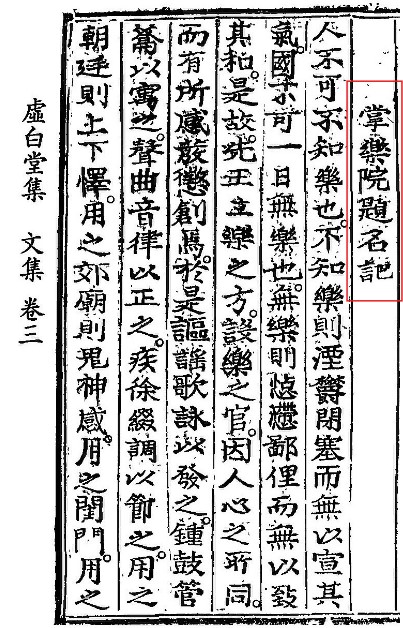 掌樂院題名記
人不可不知樂也。不知樂則湮鬱閉塞而無以宣其
氣。國不可一日無樂也。無樂則怗懘鄙俚而無以致
其和。是故先王立樂之方。設樂之官。因人心之所同。
而有所感發懲創焉。於是謳謠歌詠以發之。鍾鼓管
籥以寓之。聲曲音律以正之。疾徐綴調以節之。用之
朝廷則上下懌。用之郊廟則鬼神感。用之閨門。用之
虛白堂集 文集 卷三